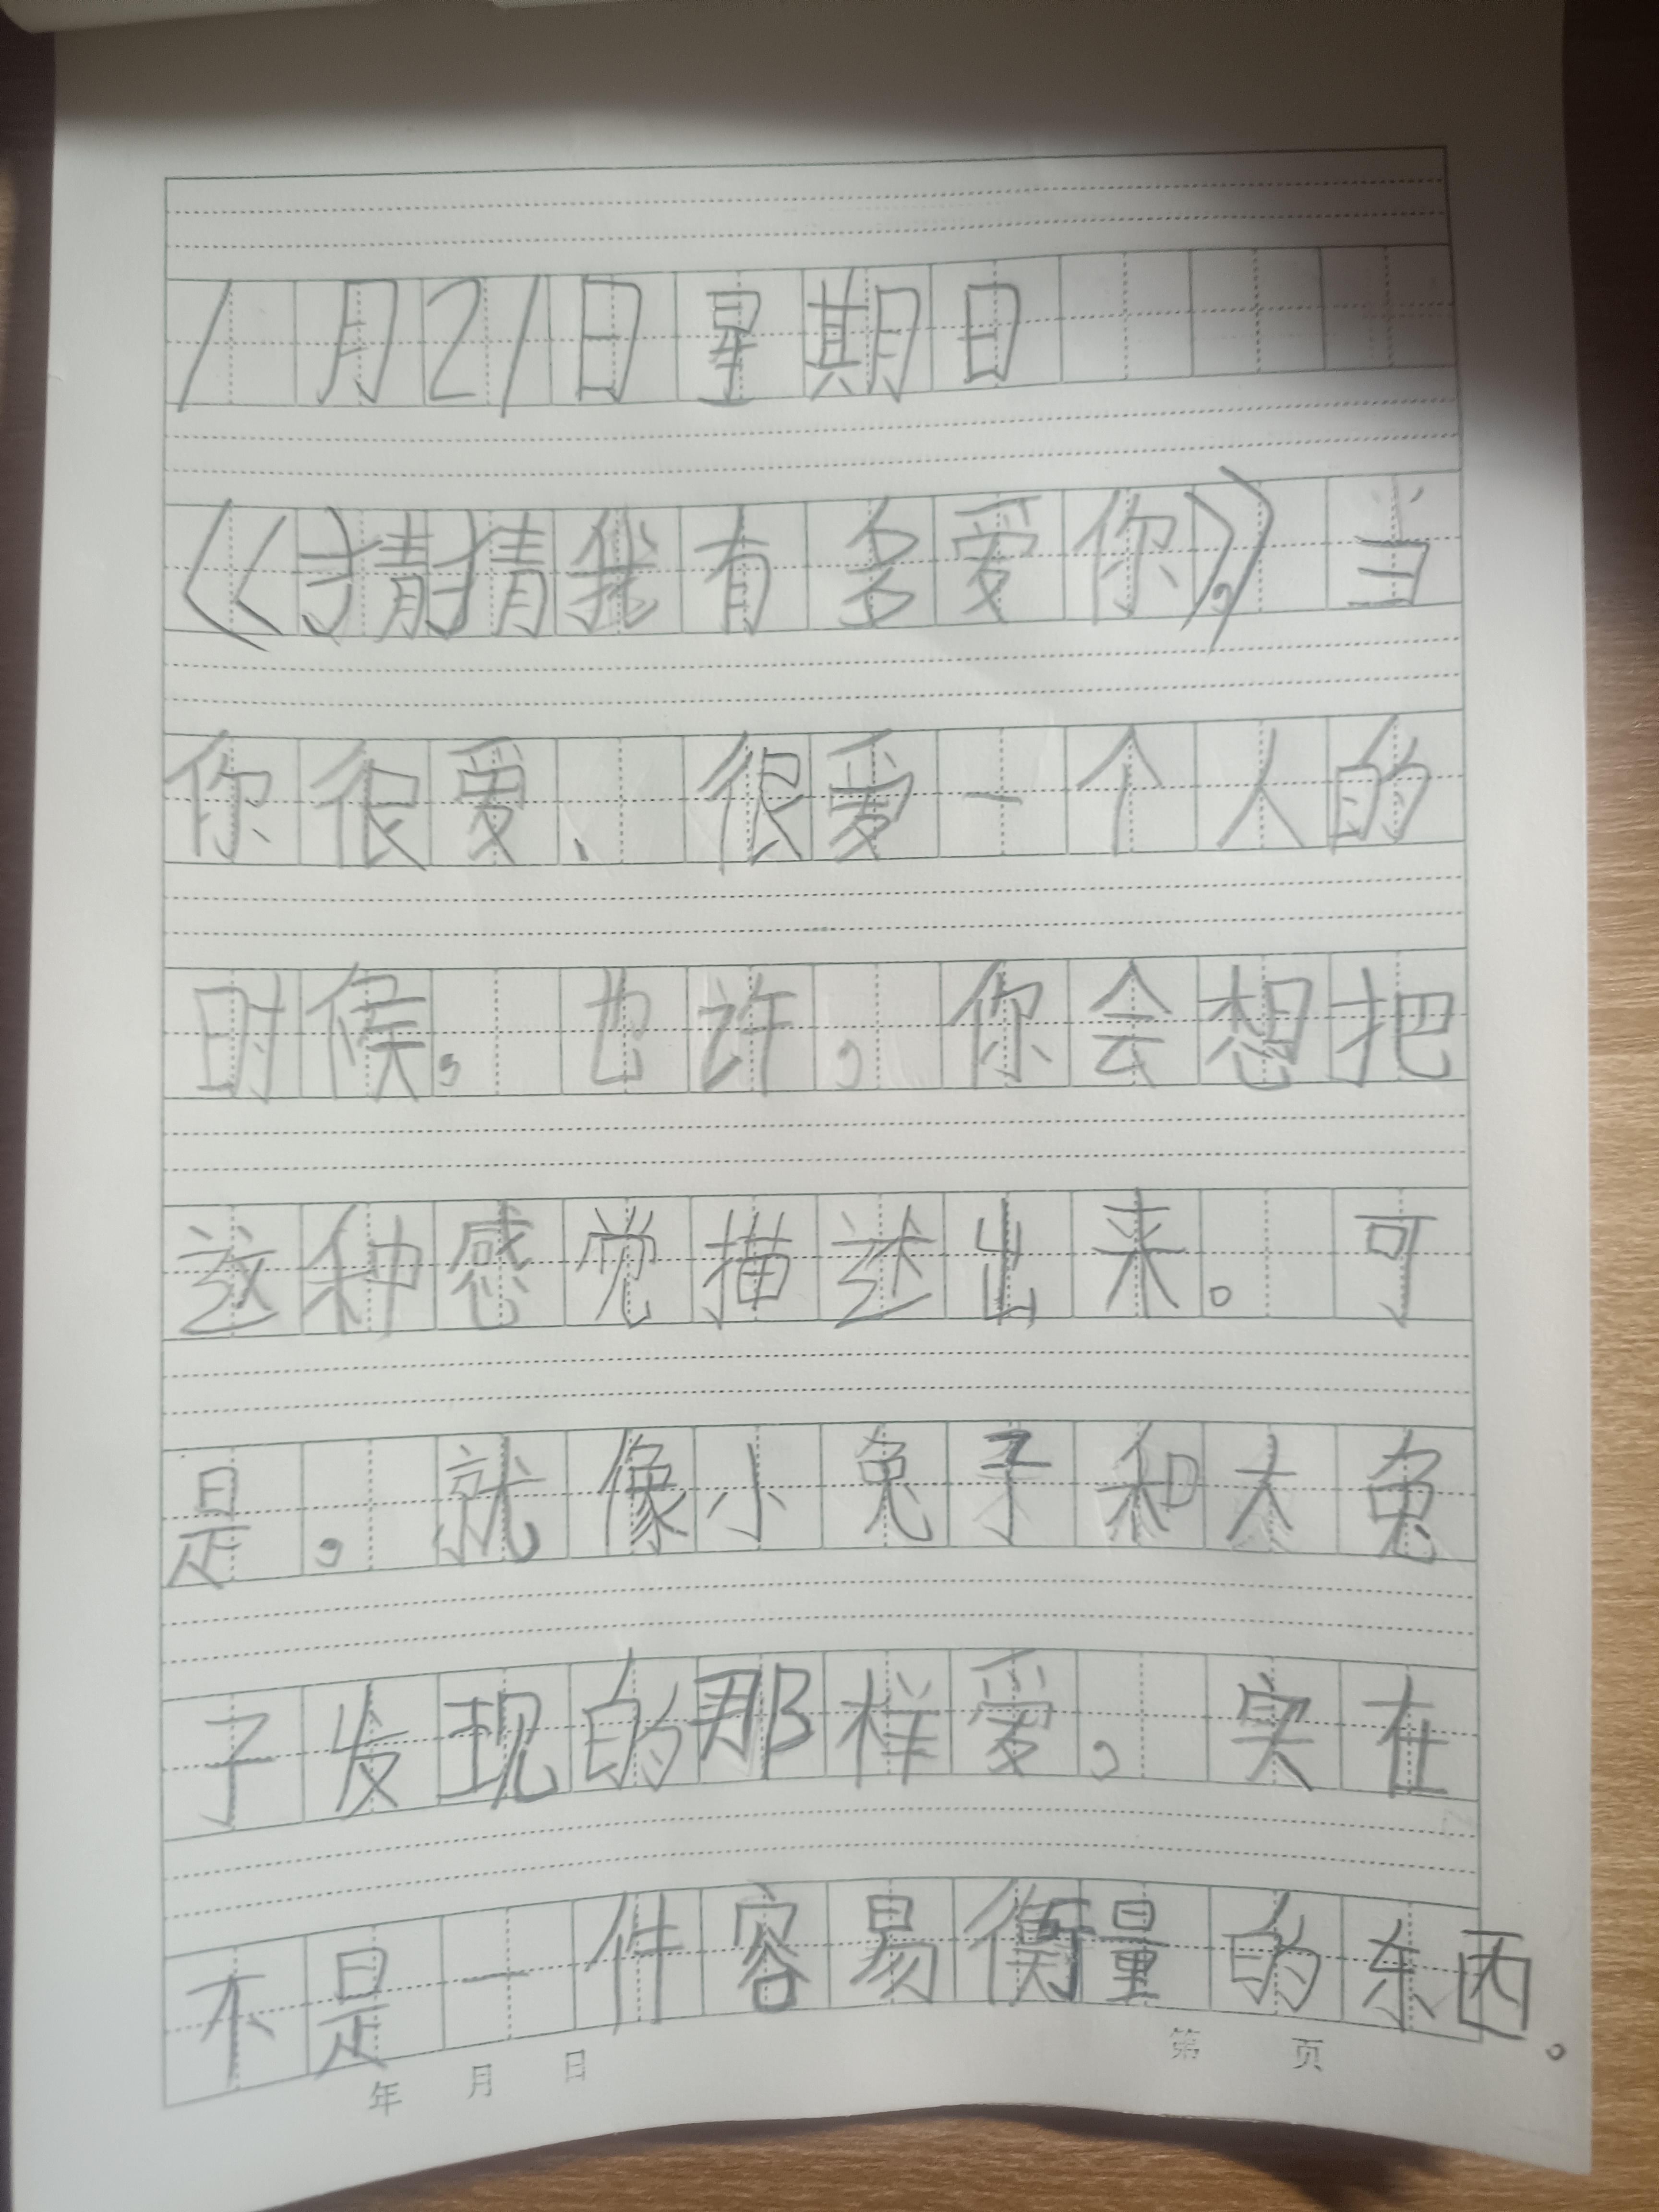 1月21日星期日
《猜猜我有多爱你》,当
你很爱、很爱一个人的
时候,也许,你会想把
这种感觉描述出来。可
是,就像小兔子和大兔
子发现的那样爱,实在
不是一件容易衡量的东西。
年 月 日 第 页